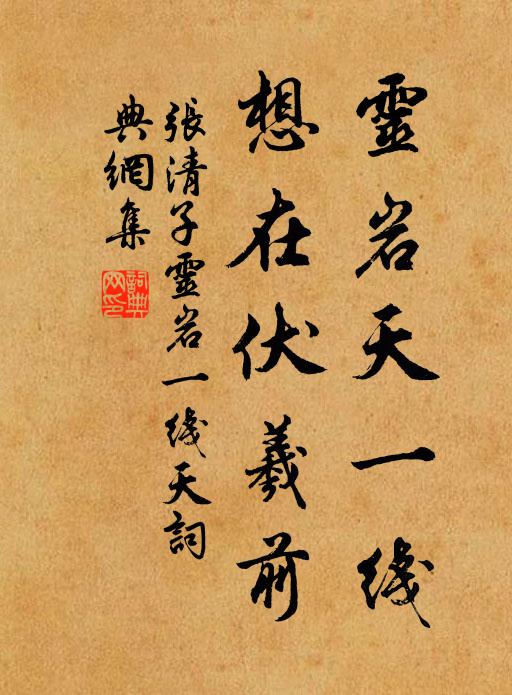 靈岩天一线
想在伏羲前
張清子靈岩一线天詞
典網集
詞典网印